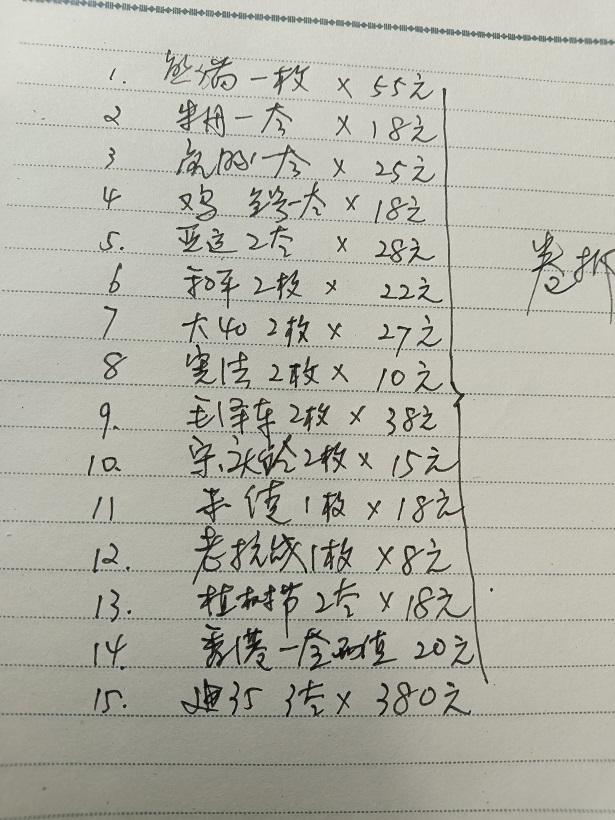 1. 熊猫一枚 × 55元
2 朱丹一套 × 18元
3 一套 × 25元
4 鸡 一套 × 18元
5. 亚运2套 × 28元
6 和平2枚 × 22元
7 大40 2枚 × 27元
8 宪法2枚 × 10元
9. 毛泽东2枚 × 38元
10. 宋庆龄2枚 × 15元
11 朱德1枚 × 18元
12. 老抗战1枚 × 8元
13. 植树节2套 × 18元
14. 香港一套面值 20元
15. 建35 3套 × 380元
卷拆